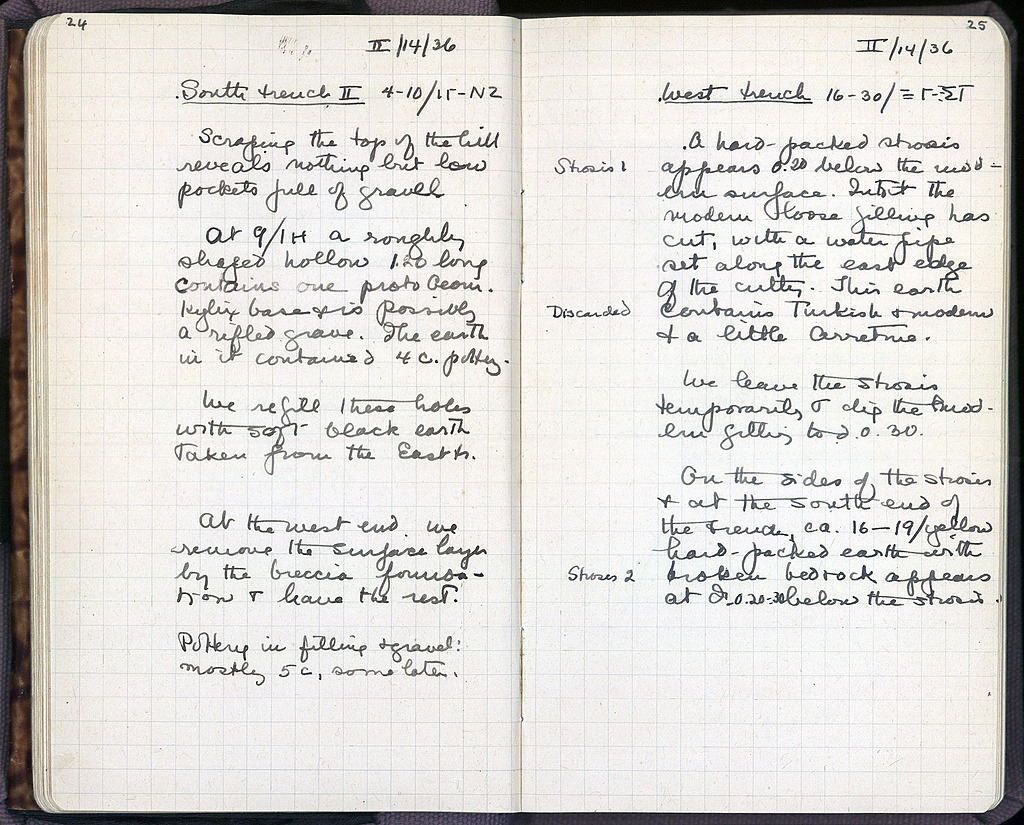 24
II/14/36
South trench II 4-10/ΙΓ-ΝΖ
Scraping the top of the hill
reveals nothing but low
pockets full of gravel.
At 9/ΙΗ a roughly
shaped hollow 1.20 long
contains one proto Geom.
kylix base & is possibly
a rifled grave. The earth
in it contained 4 c. pottery.
We refill these holes
with soft black earth
taken from the East tr.
At the west end we
remove the surface layer
by the breccia founda-
tion & leave the rest.
Pottery in filling & gravel:
mostly 5 c, some later.
25
II/14/36
West trench 16-30/
A hard-packed strosis
Strosis 1 appears 0.20 below the mod-
ern surface. Into it the
modern loose filling has
cut, with a water pipe
set along the east edge
of the cutting. This earth
Discarded contains Turkish & modern
& a little Arretine.
We leave the strosis
temporarily & dig the mod-
ern filling to d. 0.30.
On the sides of the strosis
& at the south end of
the trench, ca. 16-19/ yellow
hard-packed earth with
Stroses 2 broken bedrock appears
at d. 0.20-30 below the strosis.